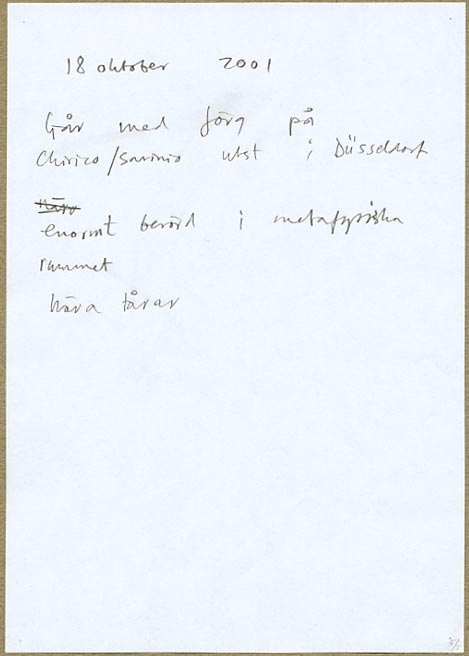 18 oktober 2001
Går med Jörg på
Chirico/Savinio utst i Düsseldorf
enormt berörd i metafysiska
rummet
nära tårar